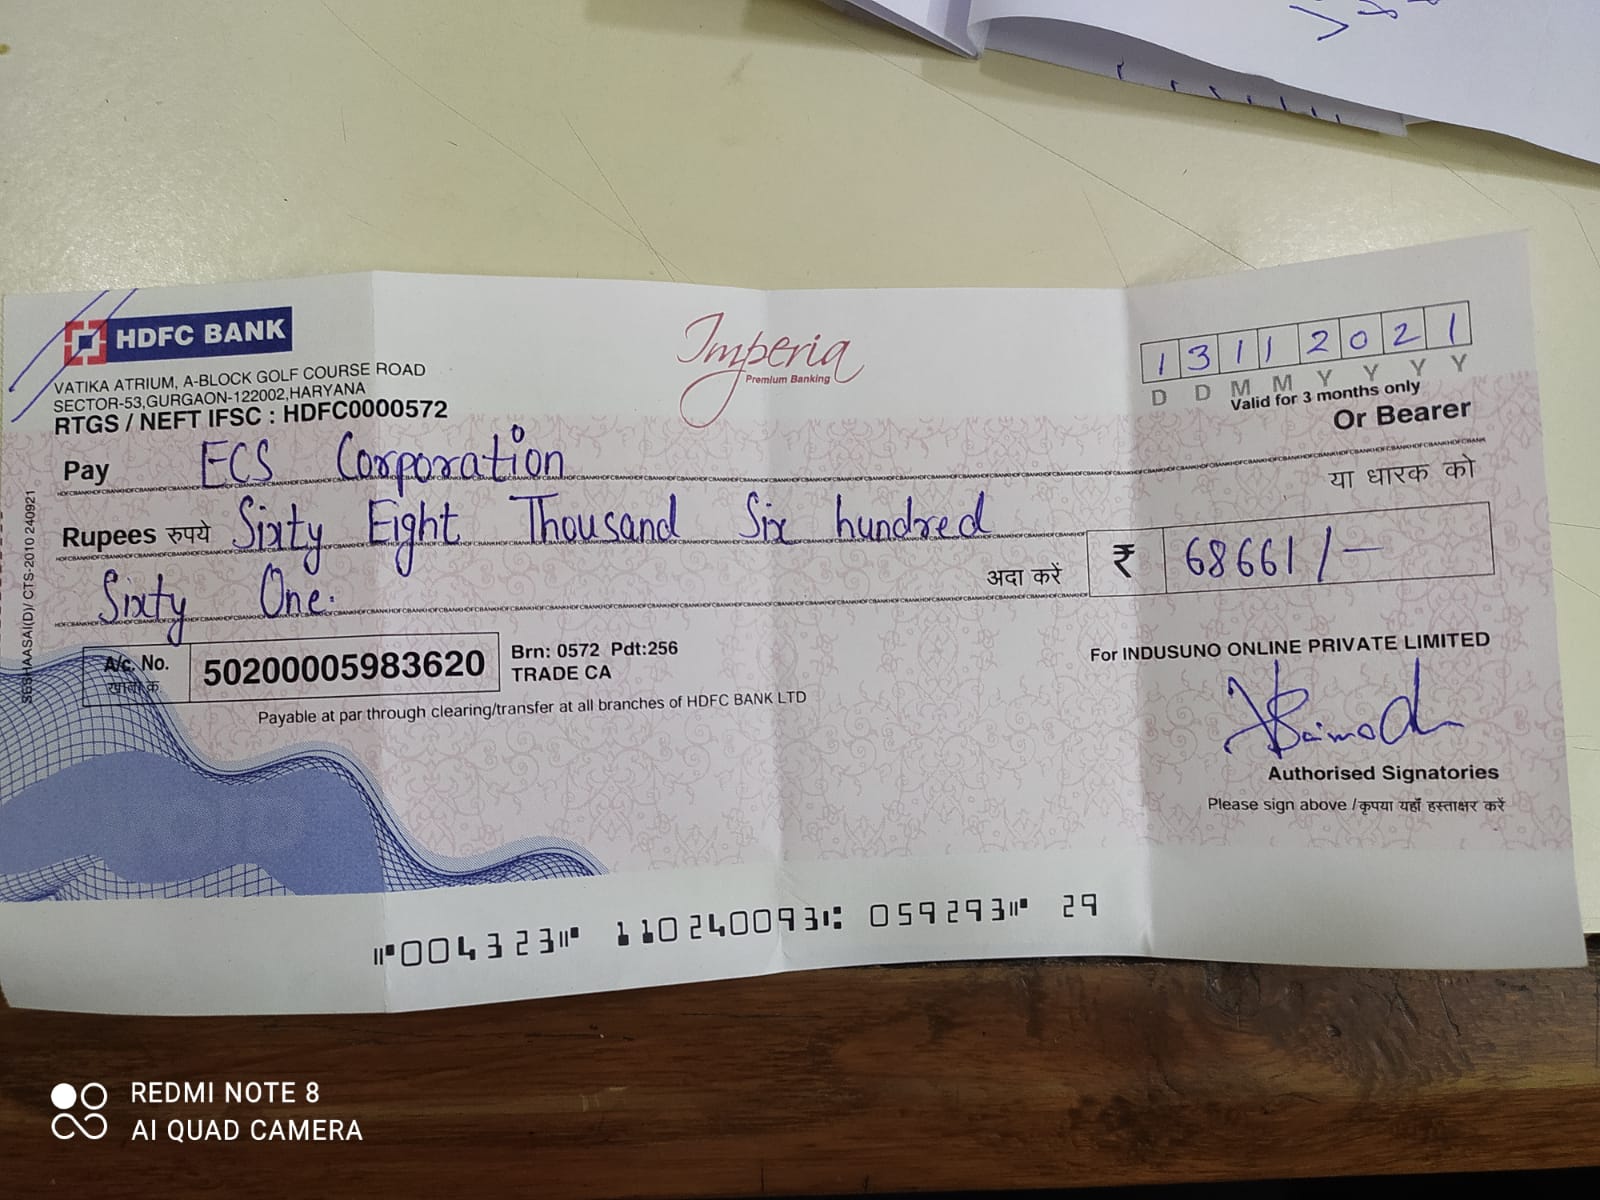 HDFC BANK
VATIKA ATRIUM, A-BLOCK GOLF COURSE ROAD
SECTOR-53,GURGAON-122002,HARYANA
RTGS / NEFT IFSC : HDFC0000572
Imperia
Premium Banking
13112021
D D M M Y Y Y Y
Valid for 3 months only
Or Bearer
Pay ECS Corporation
या धारक को
Rupees रुपये Sixty Eight Thousand Six hundred
Sixty One.
अदा करें ₹ 68661/-
A/c. No. 50200005983620
खाता क्र.
Brn: 0572 Pdt:256
TRADE CA
Payable at par through clearing/transfer at all branches of HDFC BANK LTD
For INDUSUNO ONLINE PRIVATE LIMITED
Authorised Signatories
Please sign above / कृपया यहाँ हस्ताक्षर करें
SESHAASAI(D)/ CTS-2010 240921
⑈004323⑈ 110240093⑆ 059293⑈ 29
REDMI NOTE 8
AI QUAD CAMERA